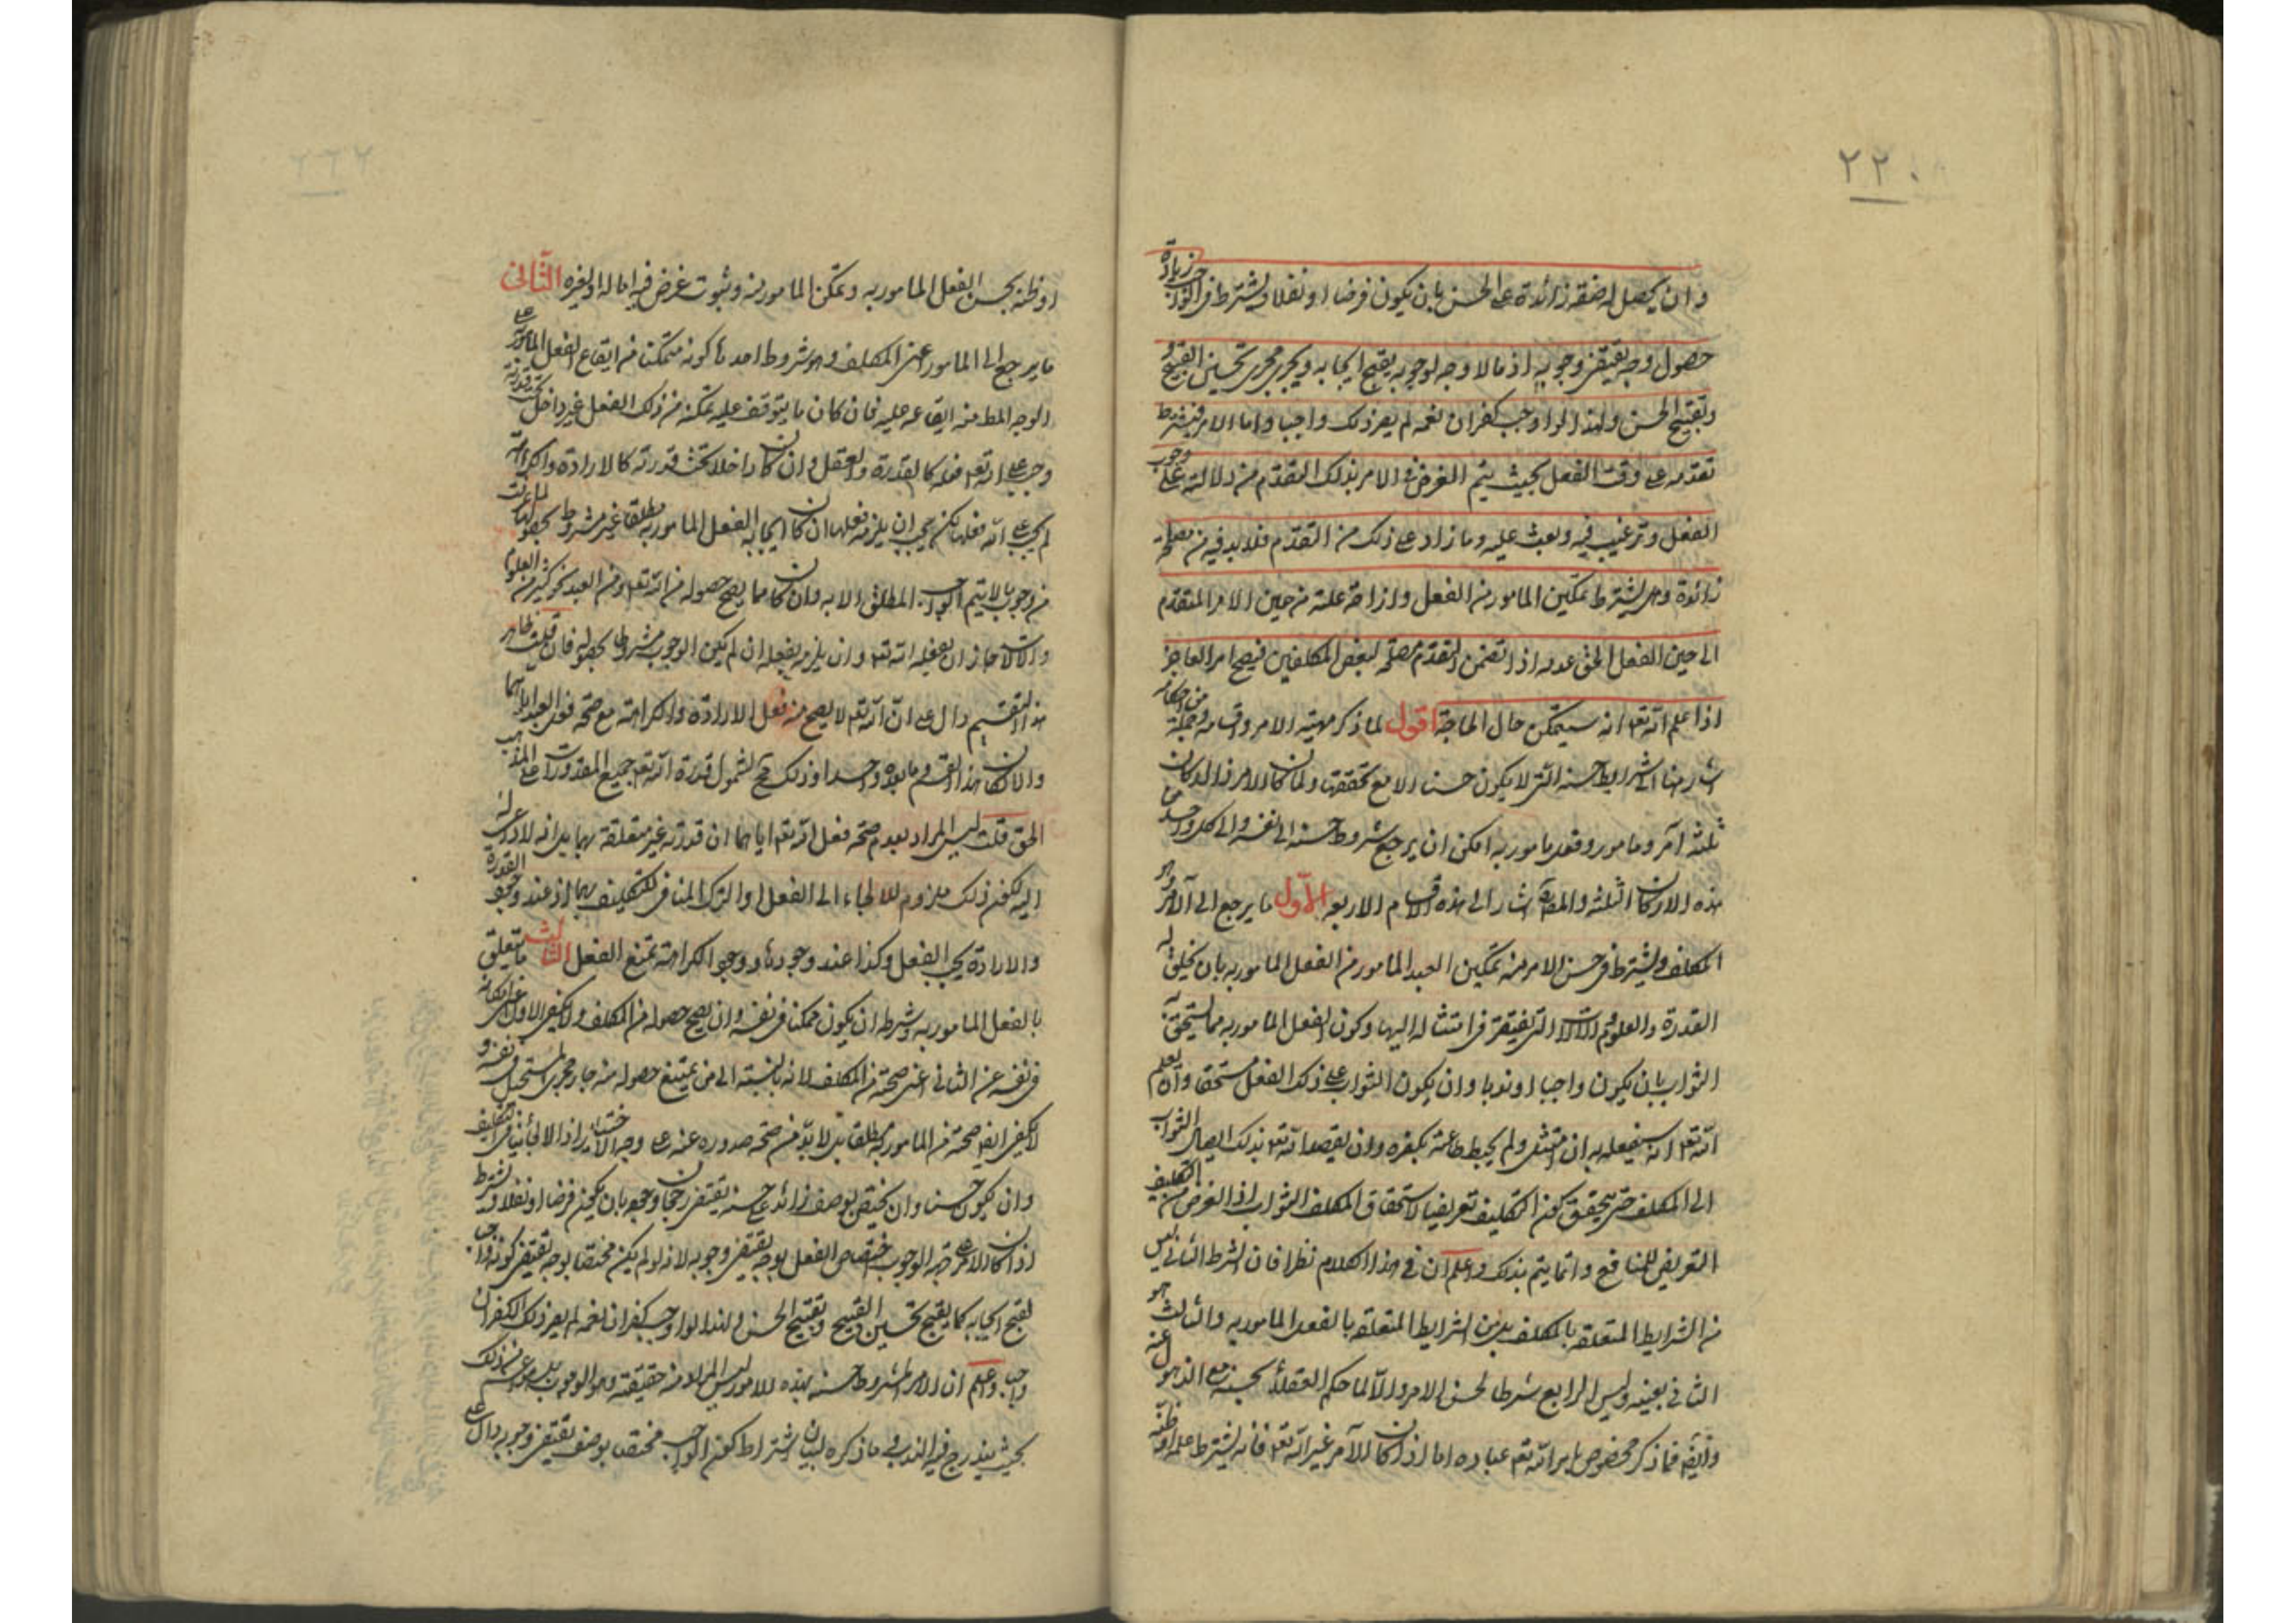 ٢٢٠
وان يحصل له صفة زائدة على الحسن بان يكون فرضا او نفلا ويشترط في الواجب زيادة
حصول وجه يقتضي وجوبه اذ مالا وجه لوجوبه يقبح ايجابه ويجري مجرى تحسين القبيح و
وتقبيح الحسن ولهذا لو اوجب كفران نعمه لم يصر ذلك واجبا واما الامر فيشترط
تقدمه على وقت الفعل بحيث يتم الغرض في الامر بذلك التقدم من دلالته على وجوب
الفعل وترغيب فيه وبعث عليه وما زاد على ذلك من التقدم فلا بد فيه من مصلحة
زائدة وهل يشترط تمكين المامور من الفعل وازاحة علته من حين الامر المتقدم
الى حين الفعل الحق عدمه اذا تضمن التقدم مصلحة لبعض المكلفين فيصح امر العاجز
اذا علم الله تعه انه سيتمكن حال الحاجة اقول لما ذكر مهية الامر وقسامه وجملة من احكامه
اشار هنا الى شرايط حسنه التي لا يكون حسنا الا مع تحققها ولما كان الامر ذا اركان
ثلثة آمر ومامور وفعل مامور به امكن ان يرجع شروط حسنه الى نفسه والى كل واحد من
هذه الاركان الثلثة والمص اشار الى هذه الاقسام الاربعه الاول ما يرجع الى الآمر هو
المكلف ويشترط في حسن الامر منه تمكين العبد المامور من الفعل المامور به بان يخلق له
القدرة والعلوم والآلات التي يفتقر في امتثاله اليها وكون الفعل المامور به مما يستحق به
الثواب بان يكون واجبا او ندبا وان يكون الثواب على ذلك الفعل مستحقا وان يعلم
الله تعه انه سيفعله به ان امتثل ولم يحبط طاعته بكفره وان يقصد الله تعه بذلك ايصال الثواب
الى المكلف حتى يتحقق كون التكليف تعريضا لاستحقاق المكلف الثواب اذ الغرض من التكليف
التعريض للمنافع وانما يتم بذلك واعلم ان في هذا الكلام نظرا فان الشرط الثاني ليس
من الشرايط المتعلقة بالمكلف بل من الشرايط المتعلقة بالفعل المامور به والثالث هو
الثاني بعينه وليس الرابع شرطا لحسن الامر والا لما حكم العقلاء بحسنه مع الذهول عنه
وايضا فما ذكر مخصوص بامر الله تعه عباده اما اذا كان الآمر غير الله تعه فانه يشترط علمه او ظنه
او ظنه بحسن الفعل المامور به وتمكن المامور منه وثبوت غرض فيه اما له او لغيره الثاني
ما يرجع الى المامور اعني المكلف وهو شروط احدها كونه متمكنا من ايقاع الفعل المامور به على
الوجه المط منه ايقاعه عليه فان كان ما يتوقف عليه تمكنه من ذلك الفعل غير داخل تحت قدرته
وجب على الله تعه فعله كالقدرة والعقل وان كان داخلا تحت قدرته كالارادة والكراهة
لم يجب على الله فعلها لكن يجب ان يلزمه فعلها ان كان ايجابه الفعل المامور به مطلقا غير مشروط بحصولها
من وجوب ما لا يتم الواجب المطلق الا به وان كان مما يصح حصوله من الله تعه ومن العبد كغير من العلوم
والآلات جاز ان يفعله الله تعه وان يلزمه بفعله ان لم يكن الوجوب مشروطا بحصوله فان قلت ظاهر
هذا التقسيم دال على ان الله تعه لا يصح منه فعل الارادة والكراهة مع صحة فعل العبد اياهما
والا لكان هذا القسم وما بعده واحدا وذلك قبح لشمول قدرة الله تعه جميع المقدورات على المذهب
الحق قلت ليس المراد بعدم صحة فعل الله تعه اياهما ان قدرته غير متعلقة بهما بل انه لا
اليه لكون ذلك ملزوم للالجاء الى الفعل او الترك المنافي للتكليف بهما اذ عند وجود القدرة
والارادة يجب الفعل وكذا عند وجودها ووجود الكراهة تمتنع الفعل الثالث ما يتعلق
بالفعل المامور به وشرطه ان يكون ممكنا في نفسه وان يصح حصوله من المكلف ولا يكفي الاول اعني امكانه
في نفسه عن الثاني اعني صحته من المكلف لانه بالنسبة الى من يمتنع حصوله منه جار مجرى المستحيل في نفسه و
لا يكفي ايضا صحته من المامور مطلقا بل لا بد من صحة صدوره عنه على وجه الاختيار اذ الالجاء ينافي التكليف
وان يكون حسنا وان يختص بوصف زائد على حسنه يقتضي رجحان وجوده بان يكون فرضا او نفلا ويشترط
اذا كان الامر على جهة الوجوب اختصاص الفعل بوجه يقتضي وجوبه لانه لو لم يكن مختصا بوجه يقتضي كونه واجبا
لقبح ايجابه كما يقبح تحسين القبيح وتقبيح الحسن ولهذا لو اوجب كفران نعمه لم يصر ذلك الكفران
واجبا واعلم ان الامر المشروط حسنه بهذه الامور ليس المراد منه حقيقته وهو الوجوب بل ما هو اعم من ذلك
بحيث يندرج فيه الندب وما ذكره لبيان اشتراط كون الواجب مختصا بوصف يقتضي وجوبه دال على